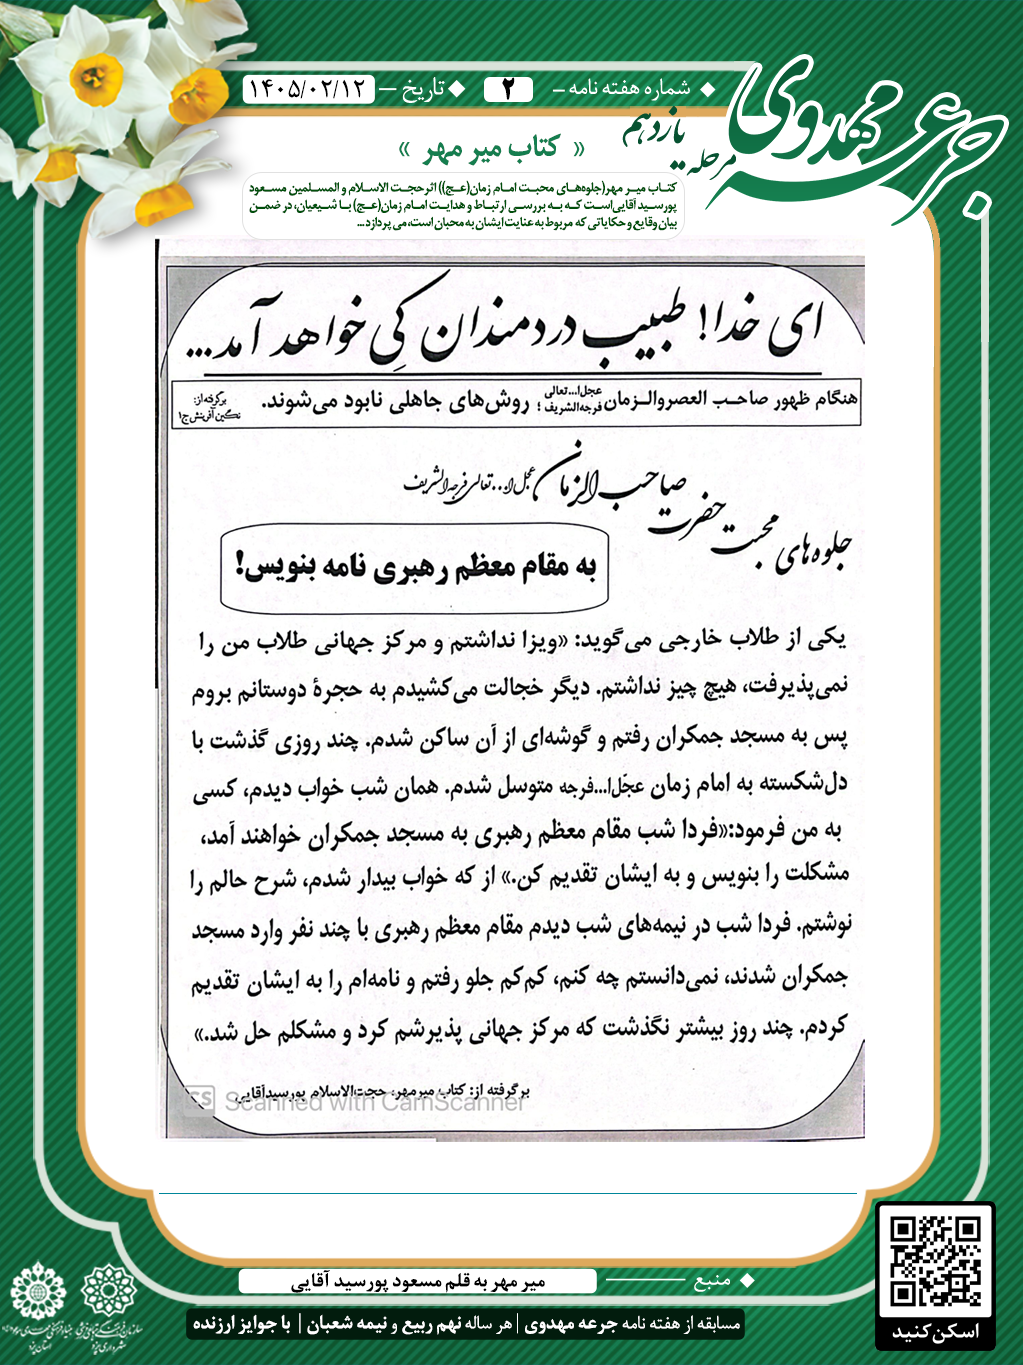 جرعه مهدوی
مرحله یازدهم
شماره هفته نامه - ۲
تاریخ - ۱۴۰۵/۰۲/۱۲
« کتاب میر مهر »
کتاب میر مهر(جلوه‌های محبت امام زمان(عج)) اثر حجت الاسلام و المسلمین مسعود
پورسید آقایی است که به بررسی ارتباط و هدایت امام زمان(عج) با شیعیان، در ضمن
بیان وقایع و حکایاتی که مربوط به عنایت ایشان به محبان است، می پردازد...
ای خدا! طبیب دردمندان کِی خواهد آمد...
هنگام ظهور صاحب العصر والزمان عجل‌ا...تعالی فرجه‌الشریف ؛ روش‌های جاهلی نابود می‌شوند.
برگرفته از:
نگین آفرینش ج۱
جلوه‌های محبت حضرت صاحب الزمان عجل ا... تعالی فرجه الشریف
به مقام معظم رهبری نامه بنویس!
یکی از طلاب خارجی می‌گوید: «ویزا نداشتم و مرکز جهانی طلاب من را
نمی‌پذیرفت، هیچ چیز نداشتم. دیگر خجالت می‌کشیدم به حجرهٔ دوستانم بروم
پس به مسجد جمکران رفتم و گوشه‌ای از آن ساکن شدم. چند روزی گذشت با
دل‌شکسته به امام زمان عجّل‌ا...فرجه متوسل شدم. همان شب خواب دیدم، کسی
به من فرمود:«فردا شب مقام معظم رهبری به مسجد جمکران خواهند آمد،
مشکلت را بنویس و به ایشان تقدیم کن.» از که خواب بیدار شدم، شرح حالم را
نوشتم. فردا شب در نیمه‌های شب دیدم مقام معظم رهبری با چند نفر وارد مسجد
جمکران شدند، نمی‌دانستم چه کنم، کم‌کم جلو رفتم و نامه‌ام را به ایشان تقدیم
کردم. چند روز بیشتر نگذشت که مرکز جهانی پذیرشم کرد و مشکلم حل شد.»
برگرفته از: کتاب میرمهر، حجت‌الاسلام پورسیدآقایی
CS Scanned with CamScanner
منبع
میر مهر به قلم مسعود پورسید آقایی
مسابقه از هفته نامه جرعه مهدوی | هر ساله نهم ربیع و نیمه شعبان | با جوایز ارزنده
اسکن کنید